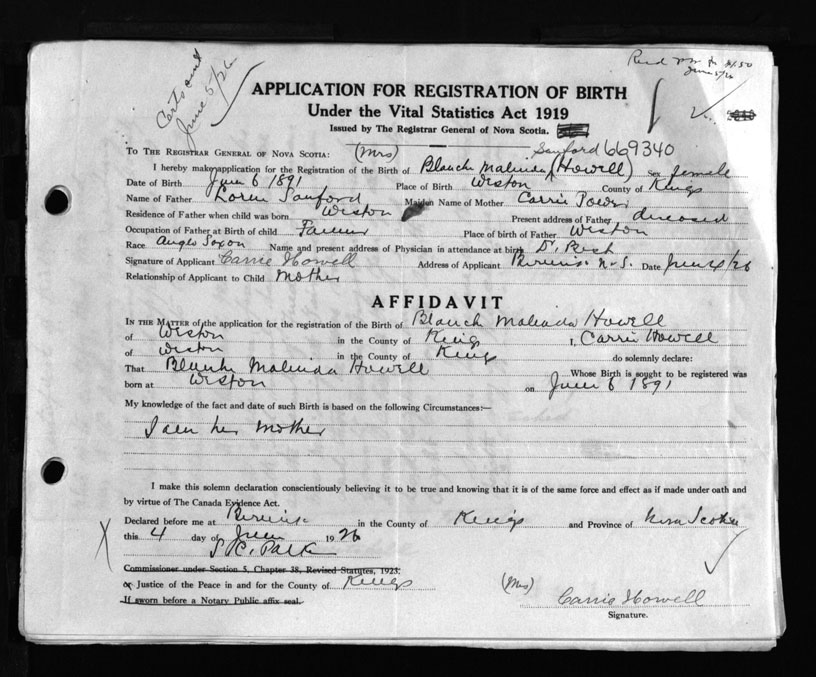 Certs out
June 5/26
June 5/26
APPLICATION FOR REGISTRATION OF BIRTH
Under the Vital Statistics Act 1919
Issued by The Registrar General of Nova Scotia.
Sanford 669340
TO THE REGISTRAR GENERAL OF NOVA SCOTIA: (Mrs)
I hereby make application for the Registration of the Birth of Blanch Malinda (Howell) Sex female
Date of Birth June 6 1891 Place of Birth Weston County of Kings
Name of Father Loren Sanford Maiden Name of Mother Carrie Power
Residence of Father when child was born Weston Present address of Father deceased
Occupation of Father at Birth of child Farmer Place of birth of Father Weston
Race Anglo Saxon Name and present address of Physician in attendance at birth Dr.
Signature of Applicant Carrie Howell Address of Applicant N.S. Date June 4/26
Relationship of Applicant to Child Mother
AFFIDAVIT
IN THE MATTER of the application for the registration of the Birth of Blanch Malinda Howell
of Weston in the County of Kings I, Carrie Howell
of Weston in the County of Kings do solemnly declare:
That Blanche Malinda Howell Whose Birth is sought to be registered was
born at Weston on June 6 1891
My knowledge of the fact and date of such Birth is based on the following Circumstances:—
I am her mother
I make this solemn declaration conscientiously believing it to be true and knowing that it is of the same force and effect as if made under oath and
by virtue of The Canada Evidence Act.
Declared before me at in the County of Kings and Province of Nova Scotia
this 4 day of June 1926
Commissioner under Section 5, Chapter 38, Revised Statutes, 1923;
or Justice of the Peace in and for the County of Kings
(Mrs) Carrie Howell
If sworn before a Notary Public affix seal.
Signature.